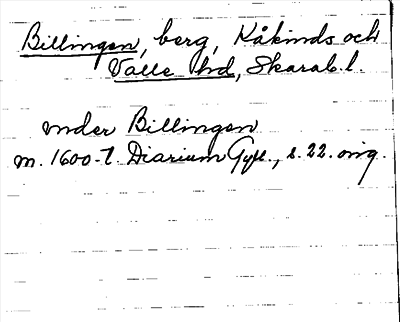 Billingen, berg, Kåkinds och
Valle hd, Skarab.l.
under Billingen
m. 1600-t. Diarium Gyll., s. 22. orig.